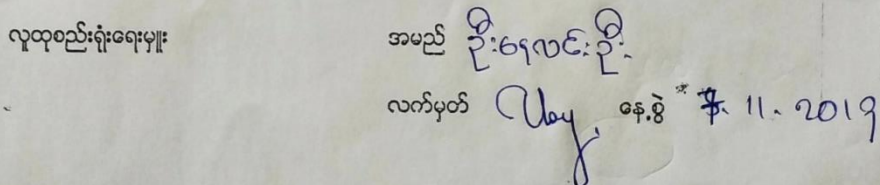 လူထုစည်းရုံးရေးမှူး အမည် ဦးနေလင်းဦး
လက်မှတ် နေ့စွဲ 7. 11. 2019